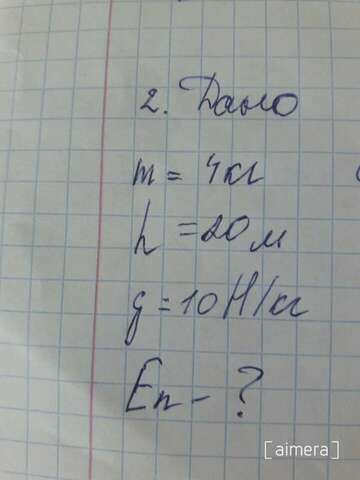 2. Дано
m = 4кг
h = 20 м
g = 10 Н/кг
Еп - ?
[aimera]